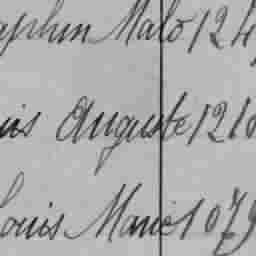 aphin Malo 124
uis Auguste 1210
Louis Marie 1079